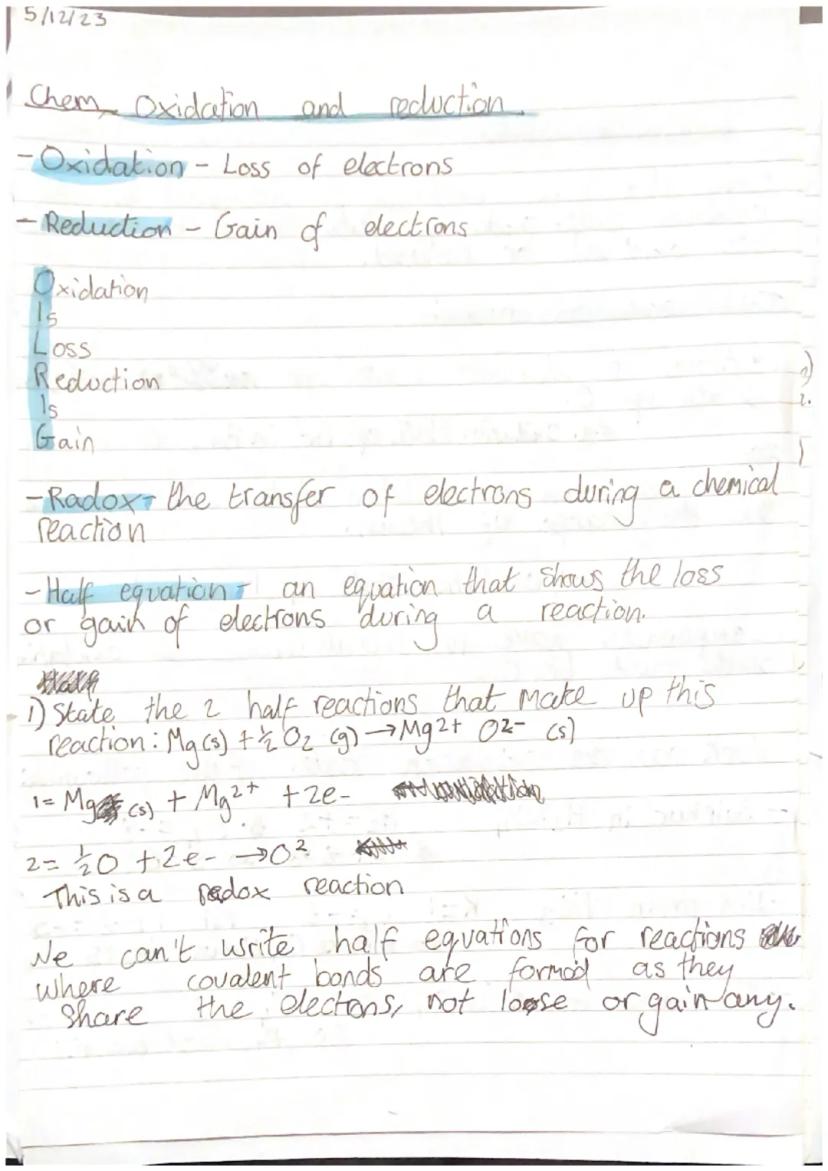 5/12/23
Chem Oxidation and reduction.
- Oxidation - Loss of electrons
- Reduction - Gain of electrons
Oxidation
Is
Loss
Reduction
Is
Gain
- Radox - the transfer of electrons during a chemical
reaction
- Half equation - an equation that shows the loss
or gain of electrons during a reaction.
1) State the 2 half reactions that make up this
reaction: Mg (s) + ½ O₂ (g) → Mg²⁺ O²⁻ (s)
1= Mg (s) + Mg²⁺ + 2e-
2= ½O + 2e- → O²
This is a redox reaction
We can't write half equations for reactions
where covalent bonds are formed as they
share the electrons, not loose or gain any.